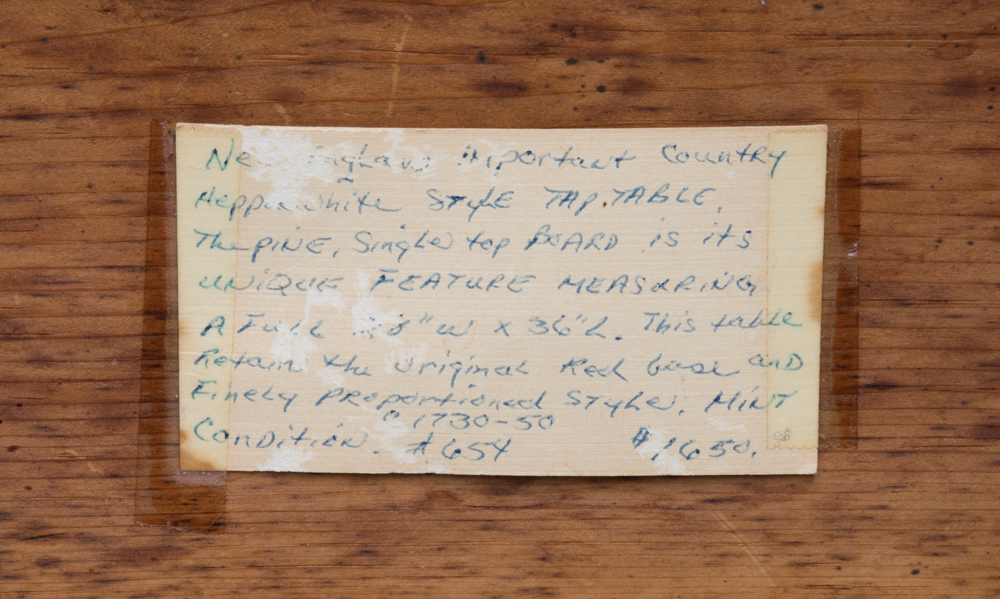 important Country
STYLE TAP.TABLE.
The PINE, Single top BOARD is its
UNIQUE FEATURE MEASURING
A Full "W x 36"L. This table
Retain the original Red base and
Finely PROPORTIONED STYLE. MINT
C 1730-50
Condition. #654 $1650.